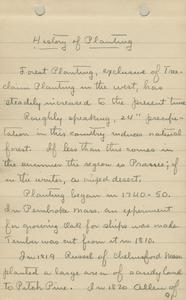 History of Planting
Forest Planting, exclusive of Tree-
claim Planting in the west, has
steadily increased to the present time
Roughly speaking, 24" precipi-
tation in this country induces natural
forest. If less than this comes in
the summer the region is Prairie; if
in the winter, a mixed desert.
Planting began in 1740-50.
In Pembroke Mass. an experiment
for growing Oak for ships was made
Timber was cut from it in 1810.
In 1819 Russel of Chelmsford Mass
planted a large area of sandy land
to Pitch Pine. In 1820 Allen of